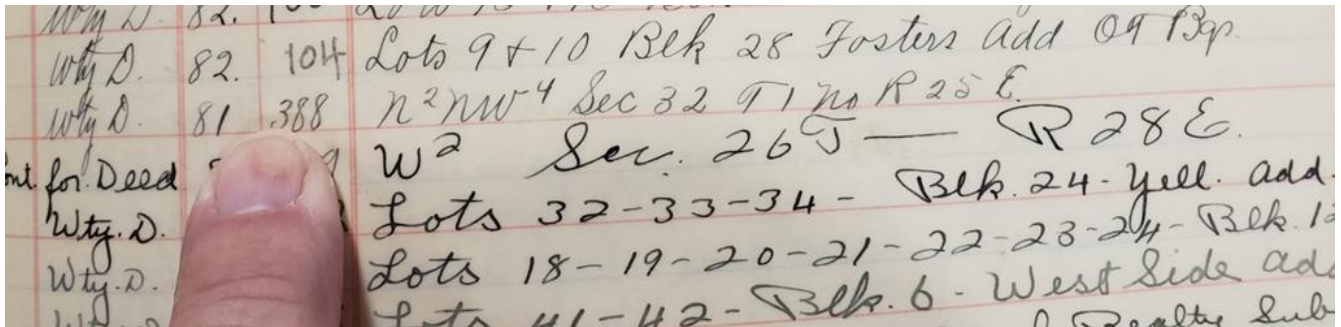 Wty D. 82.
Wty D. 82. 104 Lots 9 & 10 Blk 28 Fosters Add Of Bgs.
Wty D. 81 388 N2NW4 Sec 32 T1 No R 25 E.
for Deed W2 Sec. 26 T — R 28 E.
Wty. D. Lots 32-33-34 - Blk. 24 - Yell. Add.
Wty. D. Lots 18-19-20-21-22-23-24 - Blk.
Lots 41-42 - Blk. 6 - West Side Add
Realty Sub